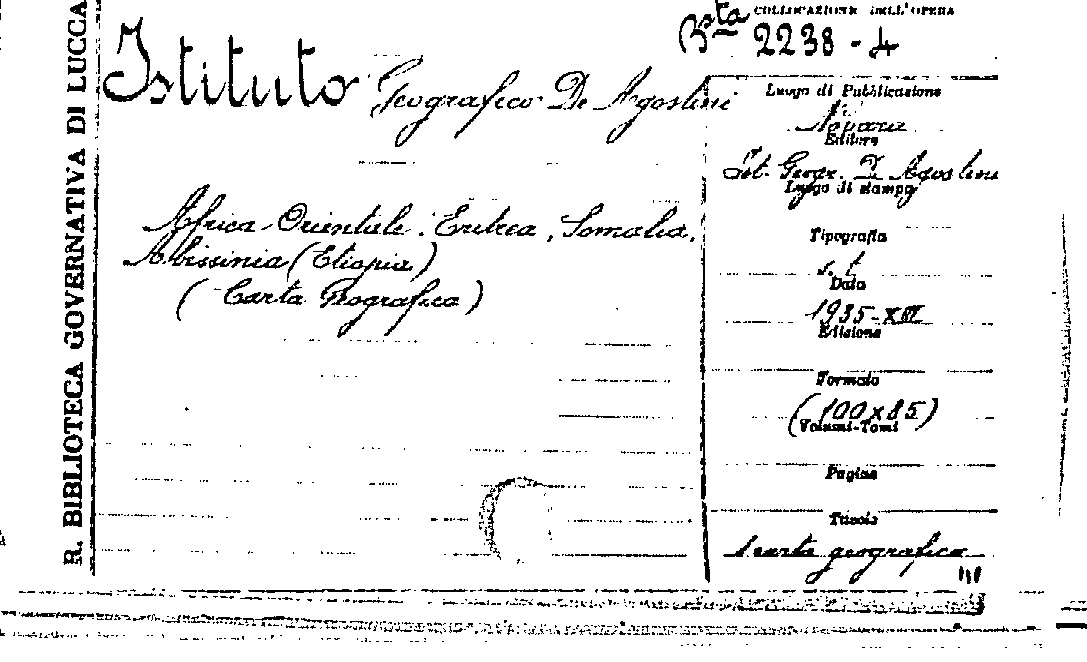 R. BIBLIOTECA GOVERNATIVA DI LUCCA
COLLOCAZIONE DELL'OPERA
Bsta 2238-4
Istituto Geografico De Agostini
Africa Orientale: Eritrea, Somalia,
Abissinia (Etiopia)
(Carta Geografica)
Luogo di Pubblicazione
Novara
Editore
Ist. Geogr. D Agostini
Luogo di stampa
Tipografia
s. t.
Data
1935-XIII
Edizione
Formato
(100x85)
Volumi-Tomi
Pagine
Tavole
1 carta geografica